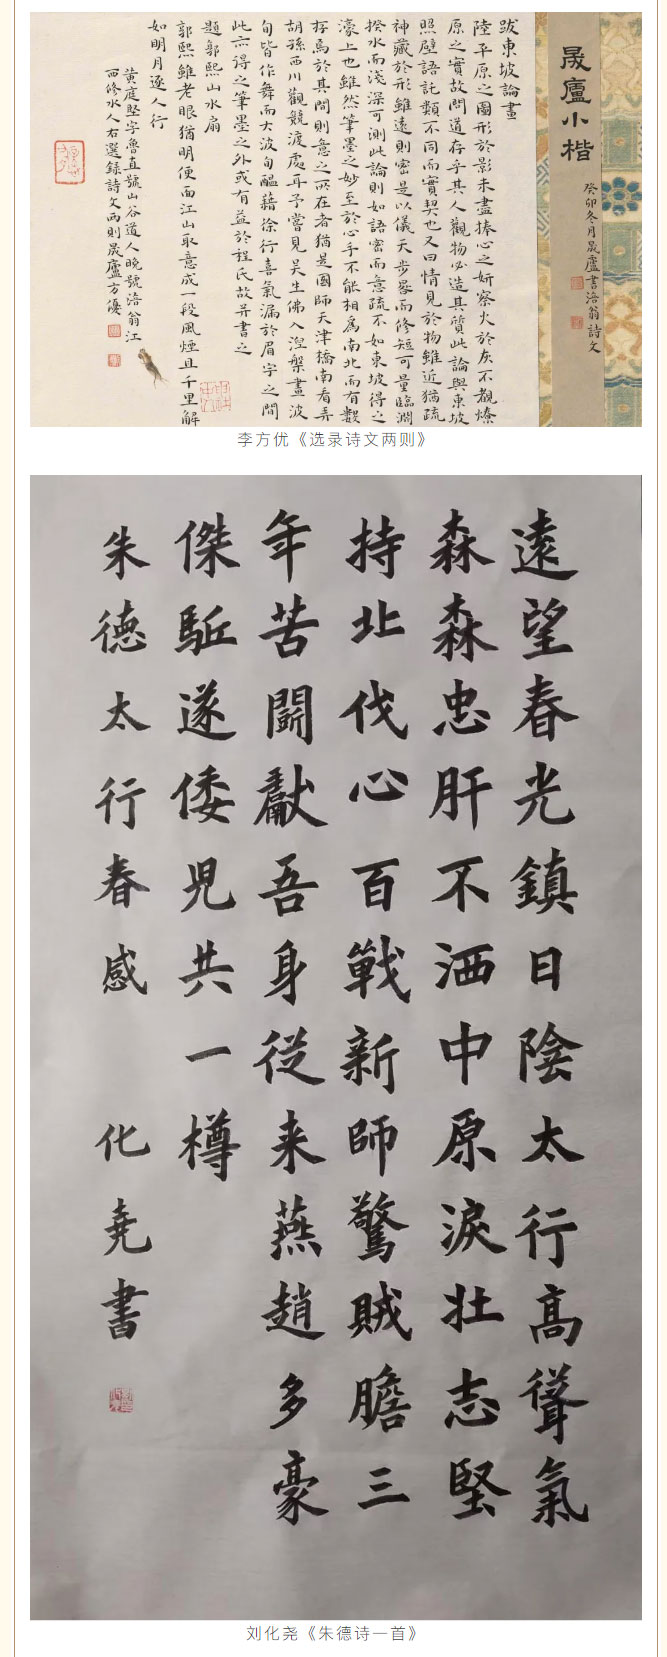 晟廬小楷
癸卯冬月晟廬書涪翁詩文
跋東坡論畫
陸平原之圖形於影未盡捧心之妍察火於灰不覩燎
原之實故問道存乎其人觀物必造其質此論與東坡
照壁語託類不同而實契也又曰情見於物雖近猶疏
神藏於形雖遠則密是以儀天步晷而修短可量臨淵
揆水而淺深可測此論則如語密而意疏不如東坡得之
濠上也雖然筆墨之妙至於心手不能相爲南北而有數
存焉於其間則意之所在者猶是國師天津橋南看弄
胡孫西川觀競渡處耳予嘗見吴生佛入涅槃畫波
旬皆作舞而大波旬醖藉徐行喜氣漏於眉宇之間
此亦得之筆墨之外或有益於程氏故并書之
題郭熙山水扇
郭熙雖老眼猶明便面江山取意成一段風煙且千里解
如明月逐人行
黄庭堅字魯直號山谷道人晚號涪翁江
西修水人右選録詩文兩則晟廬方優
李方优《选录诗文两则》
遠望春光鎮日陰太行高聳氣
森森忠肝不洒中原淚壯志堅
持北伐心百戰新師驚賊膽三
年苦鬭獻吾身從来燕趙多豪
傑駈遂倭児共一樽
朱德太行春感 化堯書
刘化尧《朱德诗一首》